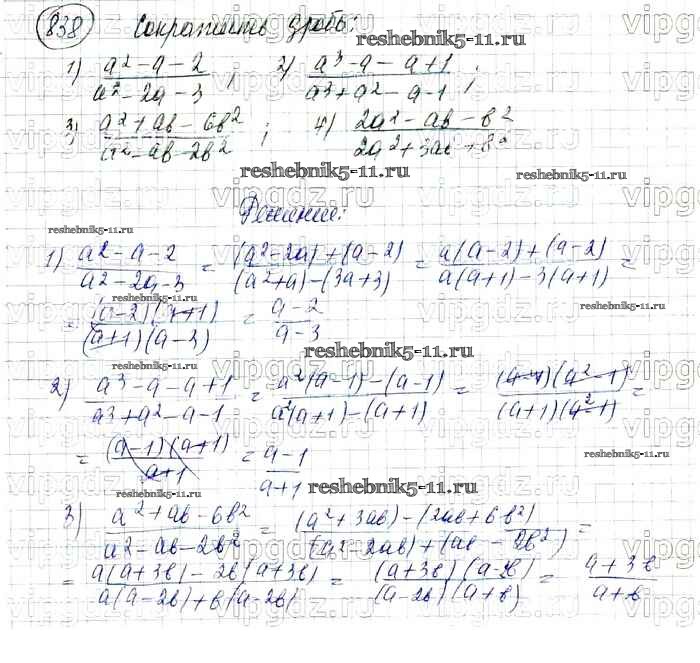 838 Сократить дробь:
1) \frac{a^2-a-2}{a^2-2a-3}; 2) \frac{a^3-a-a+1}{a^3+a^2-a-1};
3) \frac{a^2+ab-6b^2}{a^2-ab-2b^2}; 4) \frac{2a^2-ab-b^2}{2a^2+3ab+b^2}
Решение:
1) \frac{a^2-a-2}{a^2-2a-3} = \frac{(a^2-2a)+(a-2)}{(a^2+a)-(3a+3)} = \frac{a(a-2)+(a-2)}{a(a+1)-3(a+1)} =
= \frac{(a-2)(a+1)}{(a+1)(a-3)} = \frac{a-2}{a-3}
2) \frac{a^3-a-a+1}{a^3+a^2-a-1} = \frac{a^2(a-1)-(a-1)}{a^2(a+1)-(a+1)} = \frac{(a-1)(a^2-1)}{(a+1)(a^2-1)} =
= \frac{(a-1)(a+1)}{a+1} = \frac{a-1}{a+1}
3) \frac{a^2+ab-6b^2}{a^2-ab-2b^2} = \frac{(a^2+3ab)-(2ab+6b^2)}{(a^2-2ab)+(ab-2b^2)} =
= \frac{a(a+3b)-2b(a+3b)}{a(a-2b)+b(a-2b)} = \frac{(a+3b)(a-2b)}{(a-2b)(a+b)} = \frac{a+3b}{a+b}
reshebnik5-11.ru
vipgdz.ru